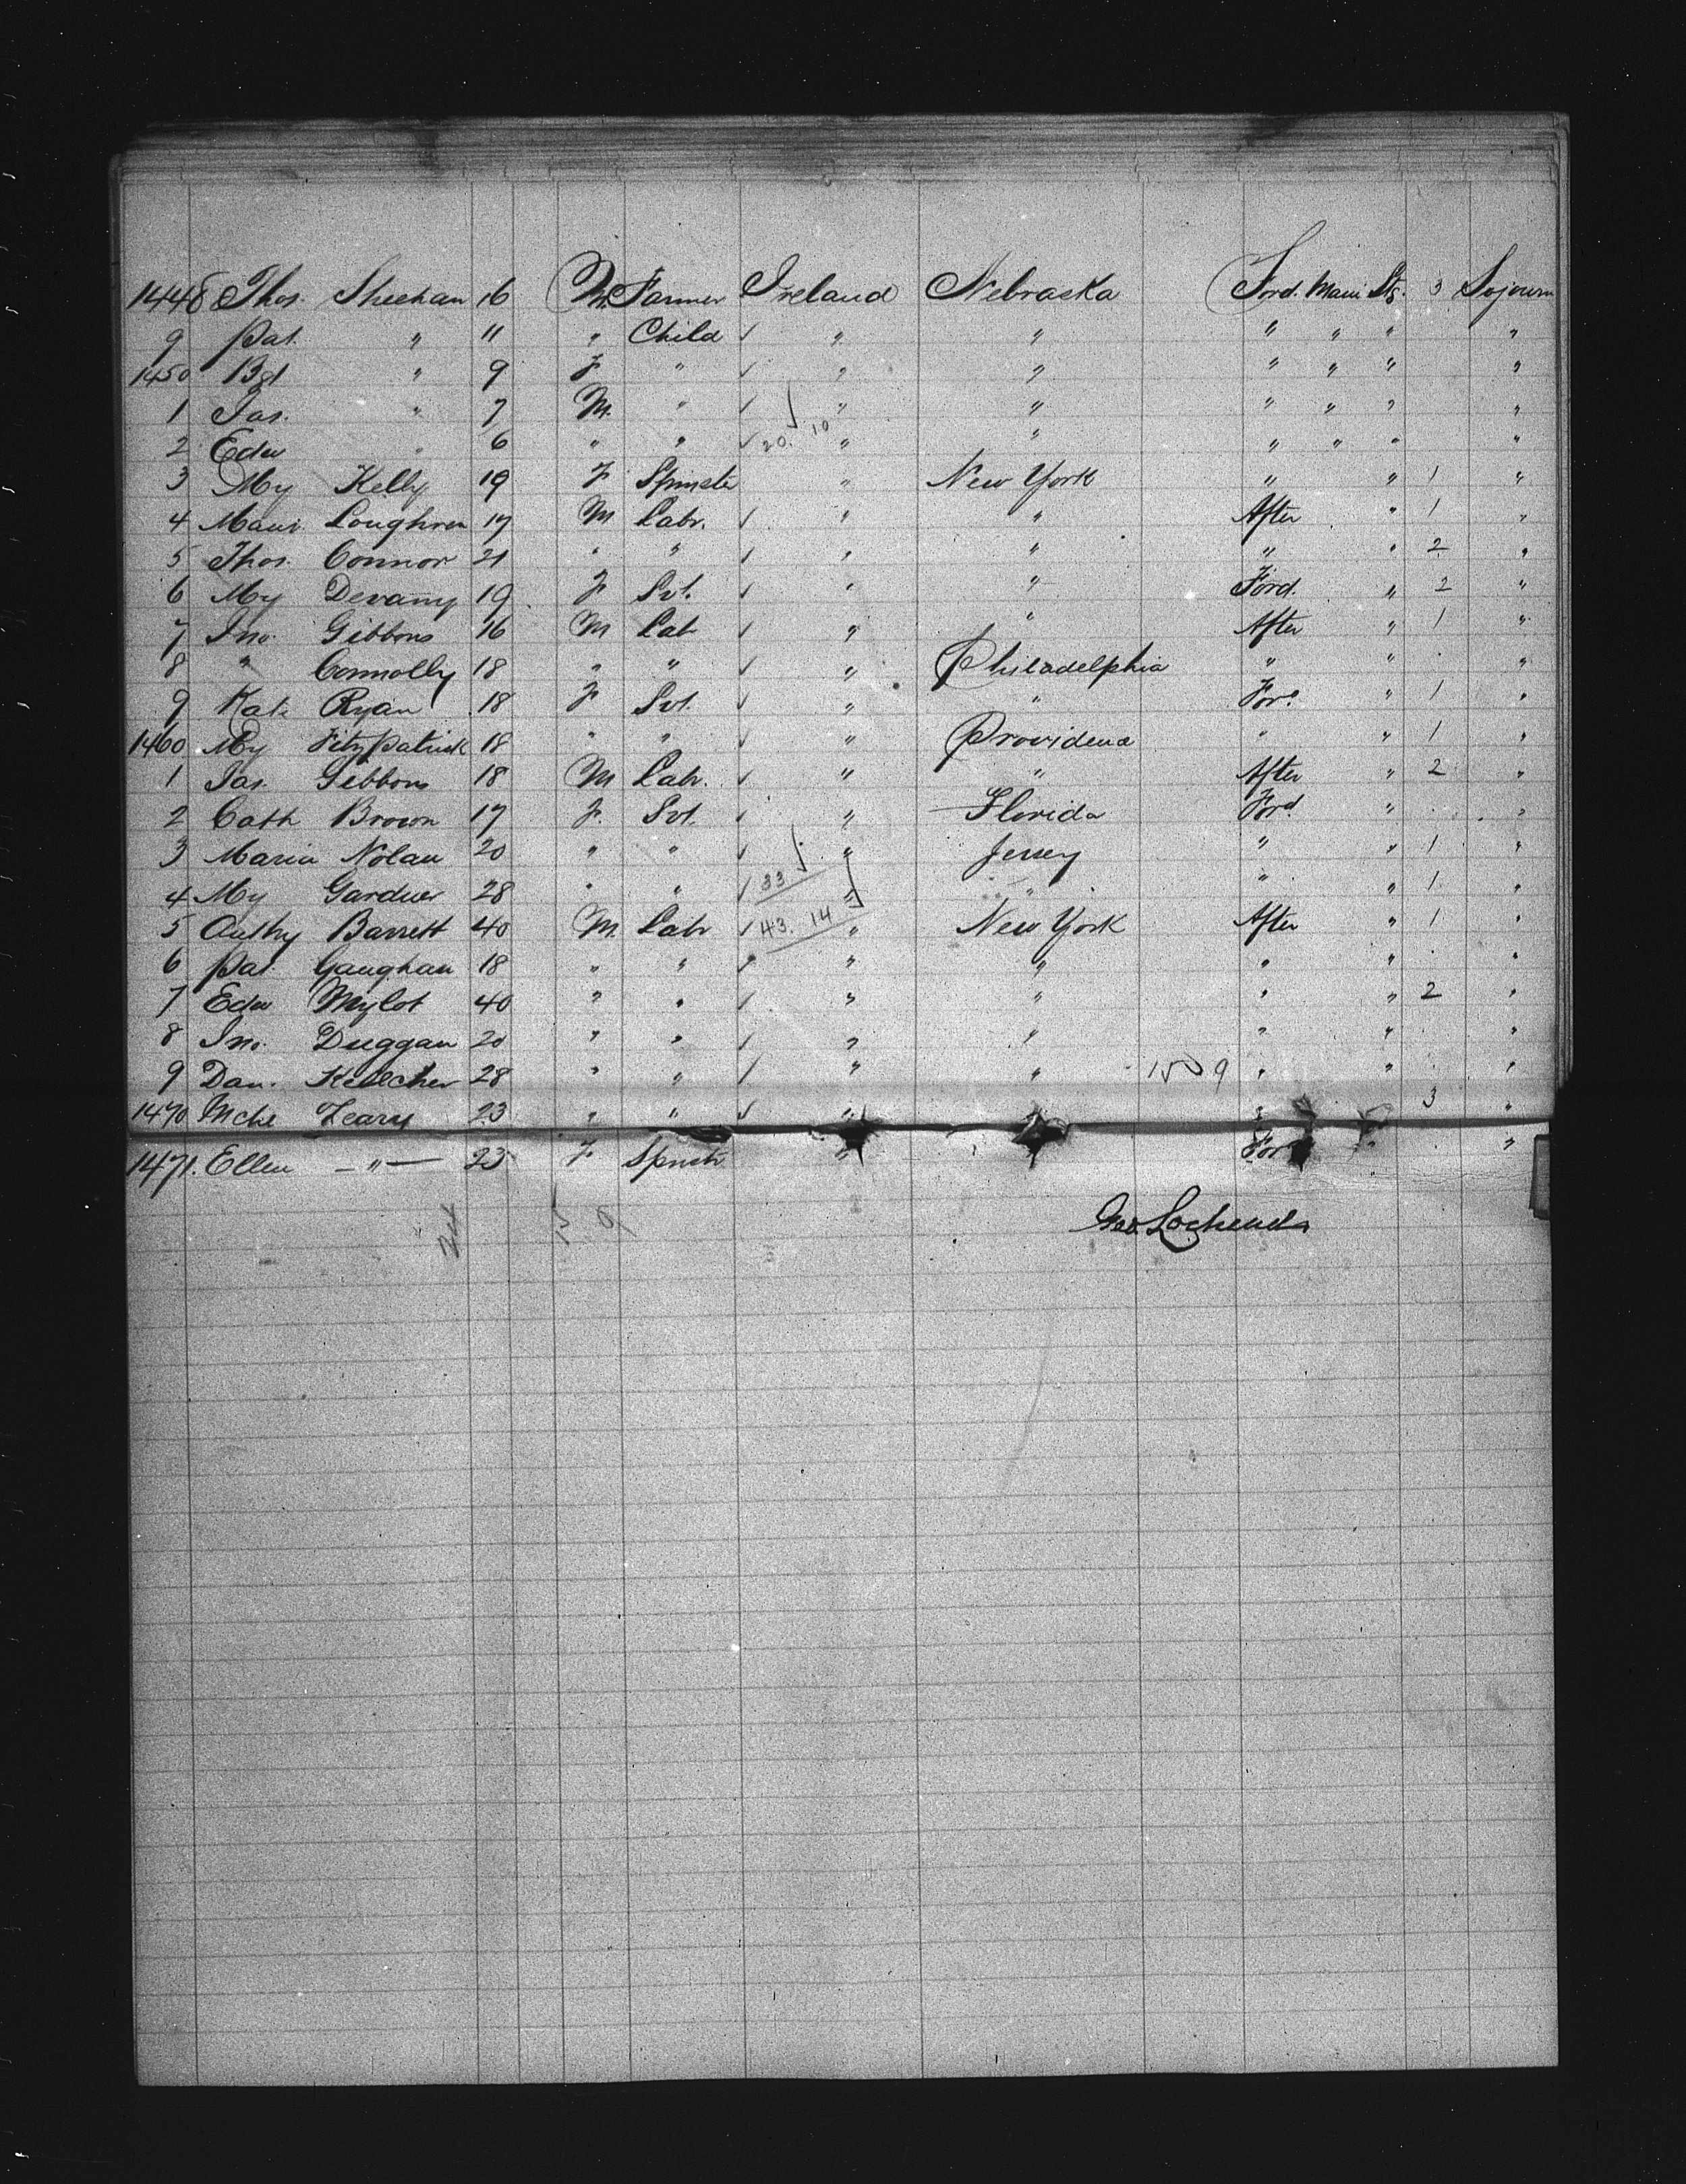 1448 Thos. Sheehan 16 M. Farmer Ireland Nebraska Ford. Main Stg. 3 Sojourn
9 Pat. " 11 " Child ✓ " " " " " "
1450 Bgt " 9 F " ✓ " " " " " "
1 Jas. " 7 M. " ✓ " " " " " "
2 Edw " 6 " " ✓ 20. 10 " " " " " "
3 My Kelly 19 F Spinster " New York " " 1 "
4 Loughren 17 M Labr. ✓ " " After " 1 "
5 Thos. Connor 21 " " ✓ " " " " 2 "
6 My Devany 19 F Svt. ✓ " " Ford. " 2 "
7 Jno. Gibbons 16 M Lab ✓ " " After " 1 "
8 " Connolly 18 " " ✓ " Philadelphia " " "
9 Kate Ryan 18 F Svt. ✓ " " For. " 1 "
1460 My Fitzpatrick 18 " " ✓ " Providence " " 1 "
1 Jas. Gibbons 18 M Labr. ✓ " " After " 2 "
2 Cath Brown 17 F. Svt. ✓ " Florida Ford. " "
3 Maria Nolan 20 " " ✓ " Jersey " " 1 "
4 My Gardner 28 " " ✓ 33 " " " " 1 "
5 Anthy Barrett 40 M. Labr ✓ 43. 14 " New York After " 1 "
6 Pat. Gaughan 18 " " ✓ " " " " "
7 Edw Mylot 40 " " ✓ " " " " 2 "
8 Jno. Duggan 20 " " ✓ " " " " "
9 Dan. Kelleher 28 " " ✓ " " 15 9 " " "
1470 Mchl Leary 23 " " ✓ " " " " 3 "
1471. Ellen — " — 23 F Spinstr " " For " "
15 9
Geo. Lochead